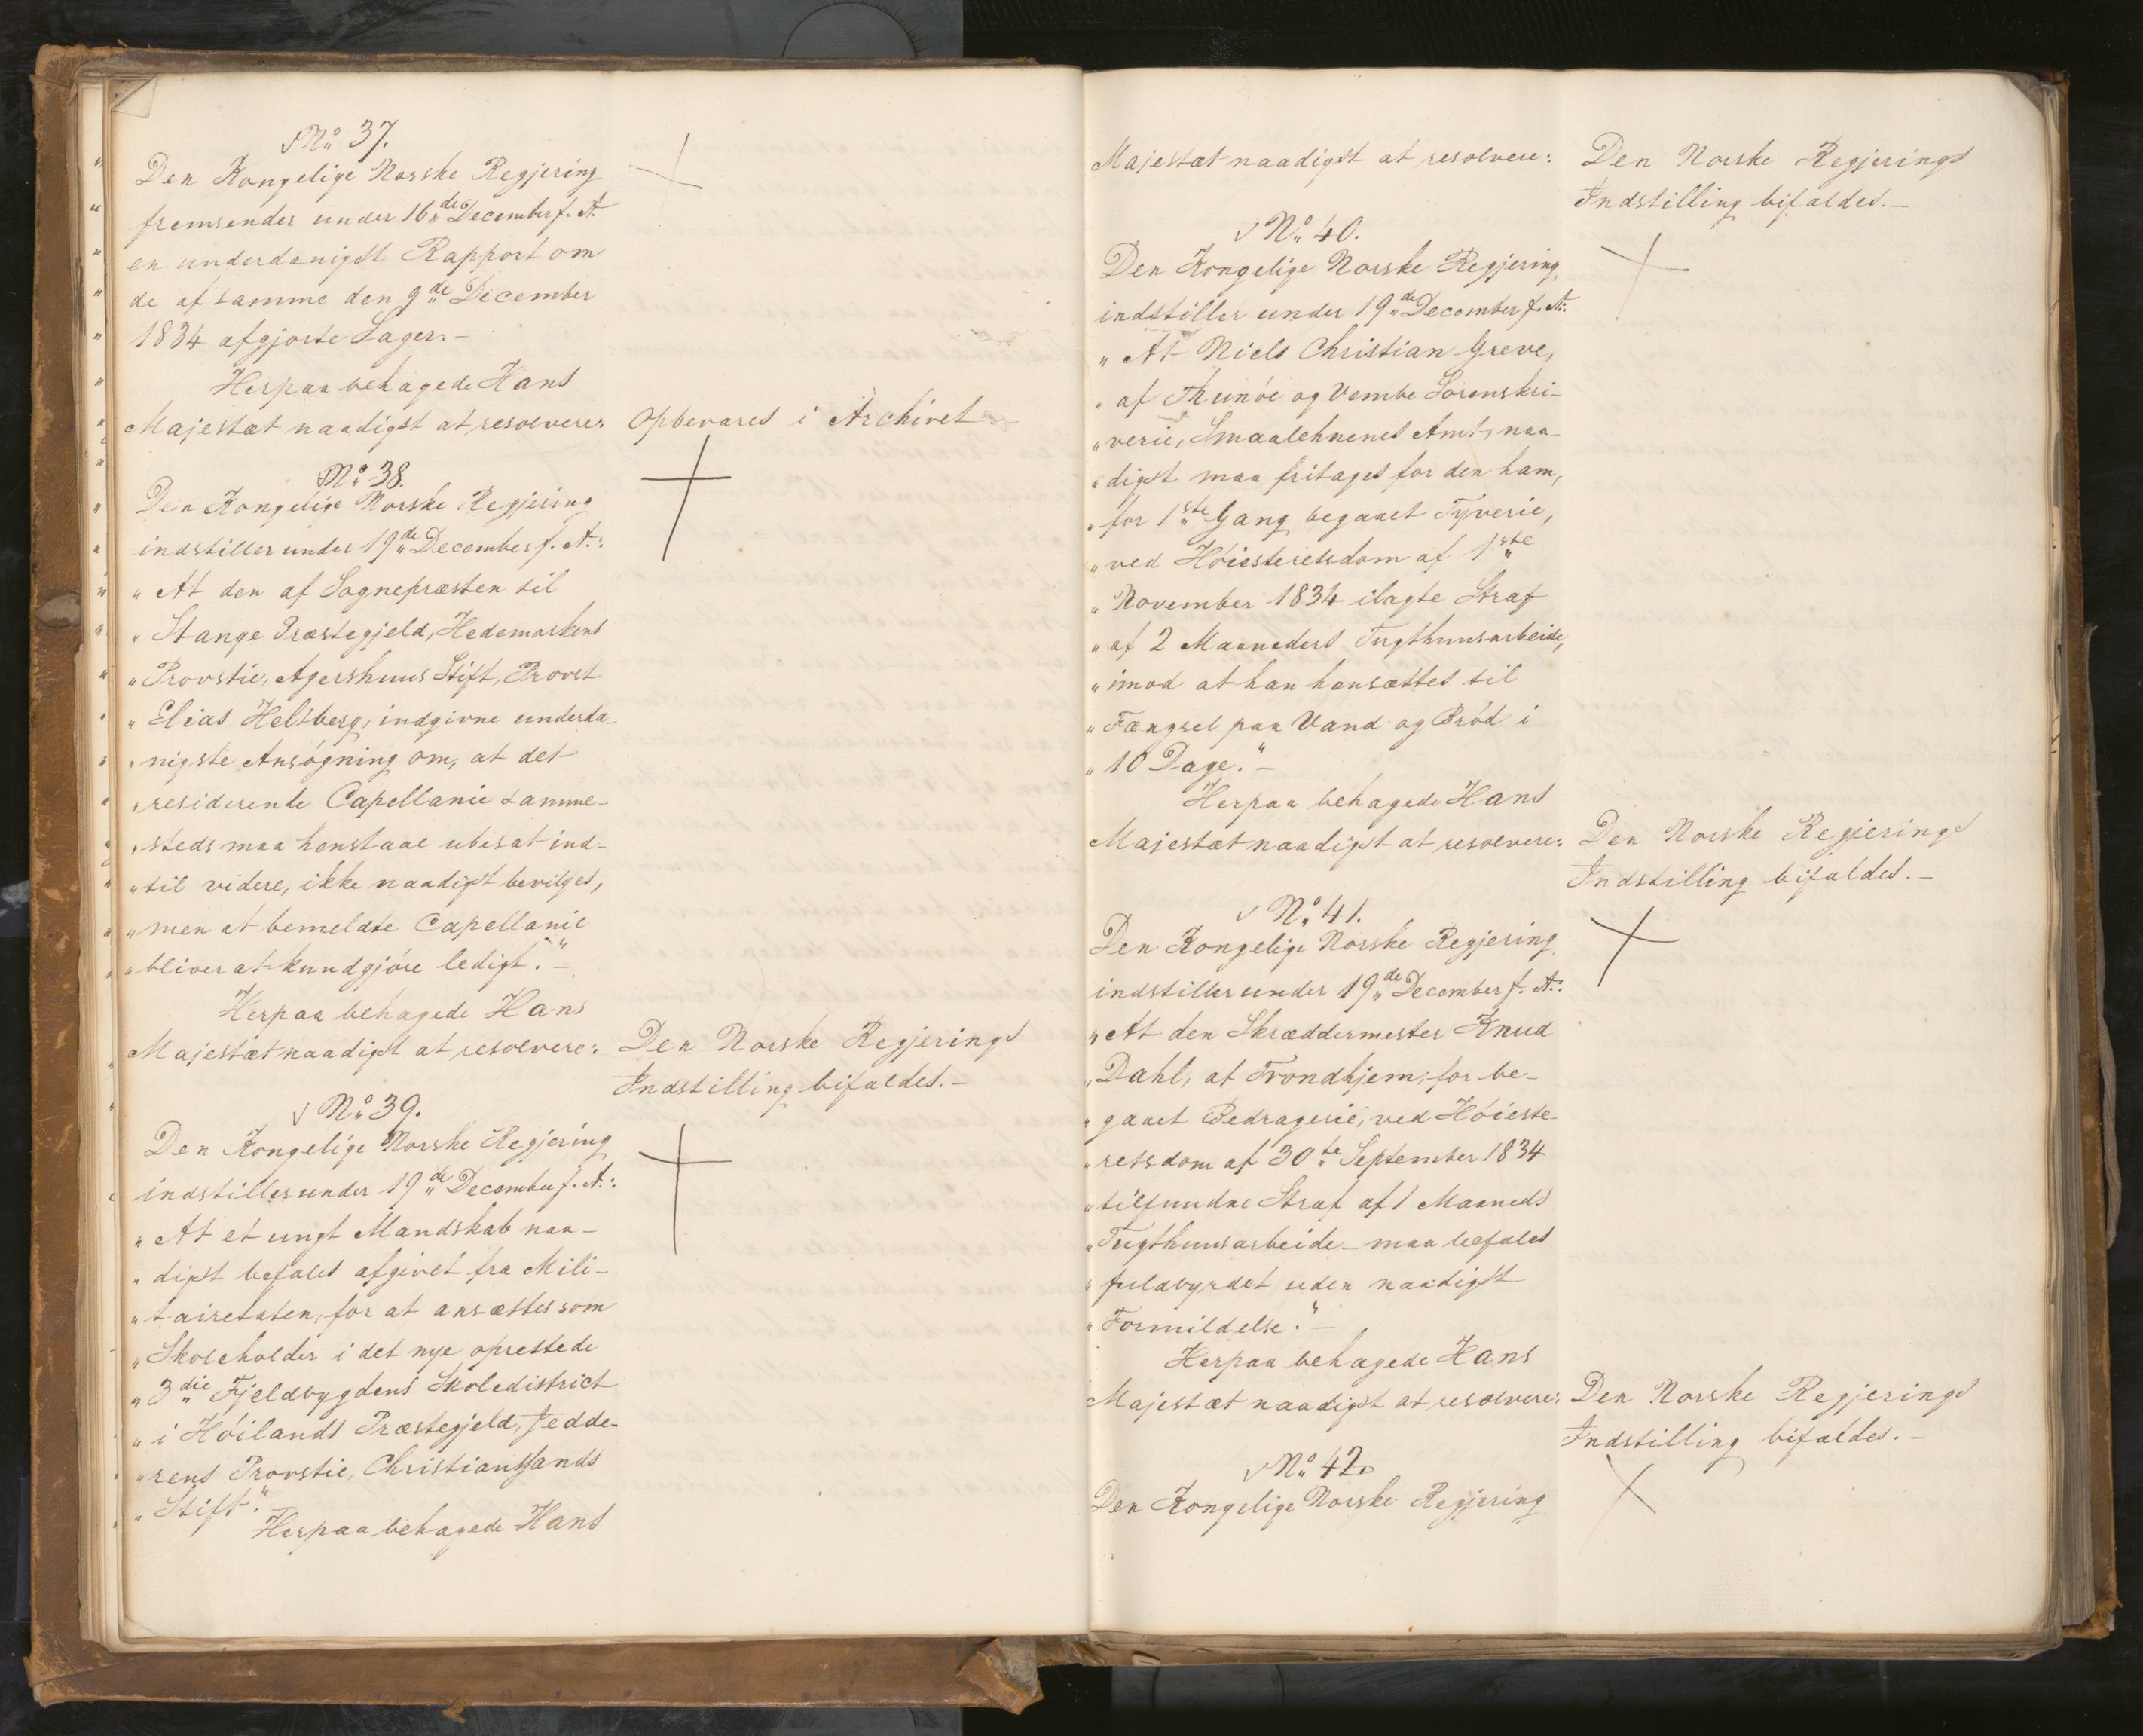 No 37.
Den Kongelige Norske Regjering
fremsender under 16de December f. A.
en underdanigst Rapport om
de af samme den 9de December
1834 afgjorte Sager.-
Herpaa behagede Hans
Majestæt naadigst at resolvere: Opbevares i Archivet
No 38.
Den Kongelige Norske Regjering
indstiller under 19de December f. A.:
" At den af Sognepræsten til
" Stange Præstegjeld, Hedemarkens
" Provstie, Agershuus Stift, Provst
" Elias Heltberg, indgivne underda-
" nigste Ansøgning om, at det
" residerende Capellanie samme-
" steds maa henstaae ubesat ind-
" til videre, ikke naadigst bevilges,
" men at bemeldte Capellanie
" bliver at kundgjöre ledigt." -
Herpaa behagede Hans
Majestæt naadigst at resolvere: Den Norske Regjerings
Indstilling bifaldes. -
No 39.
Den Kongelige Norske Regjering
indstiller under 19de December f. A.:
" At et ungt Mandskab naa-
" digst befales afgivet fra Mili-
" tairetaten, for at ansættes som
" Skoleholder i det nye oprettede
" 3die Fjeldbygdens Skoledistrict
" i Höilands Præstegjeld, Jedde-
" rens Provstie, Christiansands
" Stift." -
Herpaa behagede Hans
Majestæt naadigst at resolvere: Den Norske Regjerings
Indstilling bifaldes. -
No 40.
Den Kongelige Norske Regjering
indstiller under 19de December f. A.:
" At Niels Christian Greve,
" af Thunöe og Vembe Sorenskri-
" verie, Smaalehnenes Amt, naa-
" digst maa fritages for den ham,
" for 1ste Gang begaaet Tyverie,
" ved Höiesteretsdom af 1ste
" November 1834 ilagte Straf
" af 2 Maaneders Tugthuusarbeide,
" imod at han hensættes til
" Fængsel paa Vand og Bröd i
" 10 Dage." -
Herpaa behagede Hans
Majestæt naadigst at resolvere: Den Norske Regjerings
Indstilling bifaldes. -
No 41.
Den Kongelige Norske Regjering
indstiller under 19de December f. A.:
" At den Skræddermester Knud
" Dahl, af Trondhjem, for be-
" gaaet Bedragerie, ved Höieste-
" retsdom af 30te September 1834
" tilfundne Straf af 1 Maaneds
" Tugthuusarbeide - maa befales
" fuldbyrdet uden naadigst
" Formildelse." -
Herpaa behagede Hans
Majestæt naadigst at resolvere: Den Norske Regjerings
Indstilling bifaldes. -
No 42.
Den Kongelige Norske Regjering